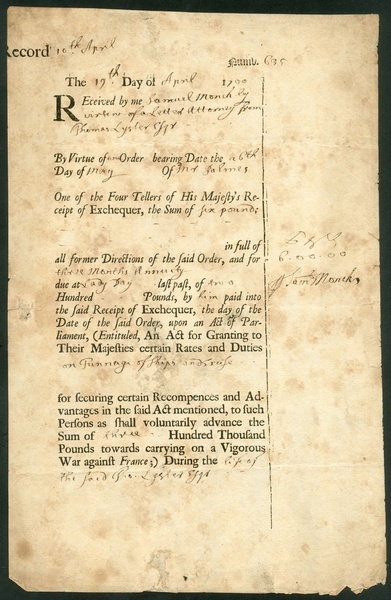 Record 10th April
Numb. 635
The 19th Day of April 1700
REceived by me Samuel Monck by
vertue of a Letter Attorney from
Thomas Lyster Esqr
By Virtue of an Order bearing Date the 26th
Day of May Of Mr Palmes
One of the Four Tellers of His Majesty's Re-
ceipt of Exchequer, the Sum of six pounds
in full of
all former Directions of the said Order, and for
three Months Annuity
due at Lady Day last past, of two
Hundred Pounds, by him paid into
the said Receipt of Exchequer, the day of the
Date of the said Order, upon an Act of Par-
liament, (Entituled, An Act for Granting to
Their Majesties certain Rates and Duties
on Tunnage of Ships and
6.00.00
Sam: Monck
for securing certain Recompences and Ad-
vantages in the said Act mentioned, to such
Persons as shall voluntarily advance the
Sum of three Hundred Thousand
Pounds towards carrying on a Vigorous
War against France;) During the life of
the said Tho: Lyster Esqr